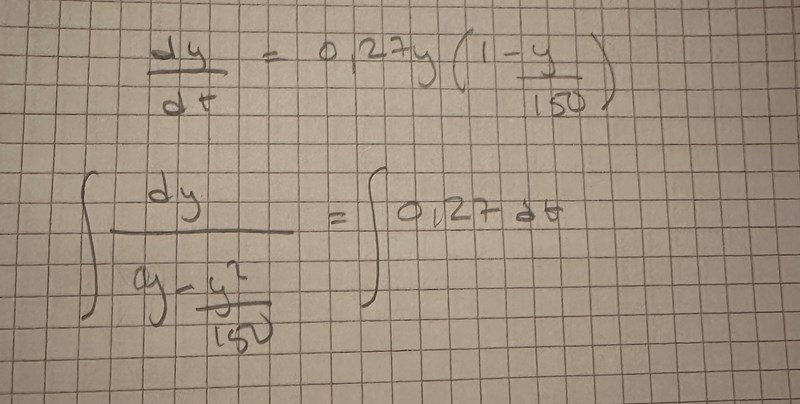 dy/dt = 0,27y (1 - y/150)
∫ dy/(y - y²/150) = ∫ 0,27 dt